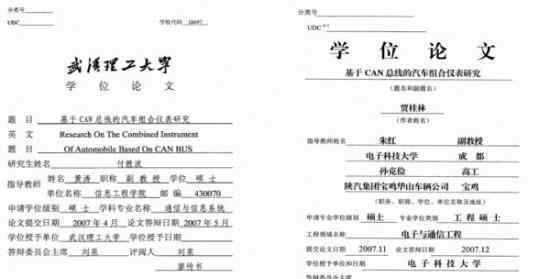 分类号
UDC
学校代码 10497
武汉理工大学
学 位 论 文
题 目 基于CAN总线的汽车组合仪表研究
英 文 Research On The Combined Instrument
题 目 Of Automobile Based On CAN BUS
研究生姓名 付胜波
指导教师 姓名 黄涛 职称 副教授 学位 硕士
单位名称 信息工程学院 邮编 430070
申请学位级别 硕士 学科专业名称 通信与信息系统
论文提交日期 2007年4月 论文答辩日期 2007年5月
学位授予单位 武汉理工大学 学位授予日期
答辩委员会主席 刘泉 评阅人 刘泉
廖传书
分类号
UDC
学 位 论 文
基于 CAN 总线的汽车组合仪表研究
(题名和副题名)
贾桂林
(作者姓名)
指导教师姓名 朱红 副教授
电子科技大学 成 都
孙克俭 高工
陕汽集团宝鸡华山车辆公司 宝鸡
(职务、职称、学位、单位名称及地址)
申请专业学位级别 硕士 专业学位类别 工程硕士
工程领域名称 电子与通信工程
提交论文日期 2007.11 论文答辩日期 2007.12
学位授予单位和日期 电子科技大学
答辩委员会主席